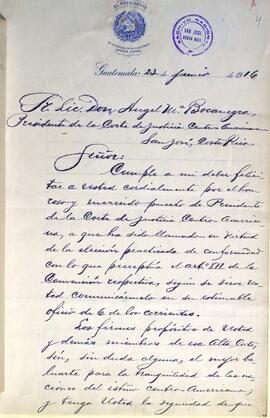 EL PRESIDENTE
DE LA REPUBLICA DE GUATEMALA
AMERICA CENTRAL
ARCHIVO NACIONAL
SAN JOSE
COSTA RICA
4
Guatemala: 22 de junio de 1916
Lic. Don Angel M. Bocanegra,
Presidente de la Corte de Justicia Centro-Americana
San José, Costa Rica.
Señor:
Cumple a mi deber felici
tar a Usted cordialmente por el hon
roso y merecido puesto de Presidente
de la Corte de Justicia Centro-Ame
ricana, a que ha sido llamado en virtud
de la elección practicada de conformidad
con lo que preceptúa el artº III de la
Convención respectiva, según se sirve Us
ted comunicármelo en su estimable
oficio de 6 de los corrientes.
Los firmes propósitos de Usted
y demás miembros de esa Alta Corte,
són, sin duda alguna, el mejor ba
luarte para la tranquilidad de las na
ciones del istmo centro-americano;
y tenga Usted la seguridad de que